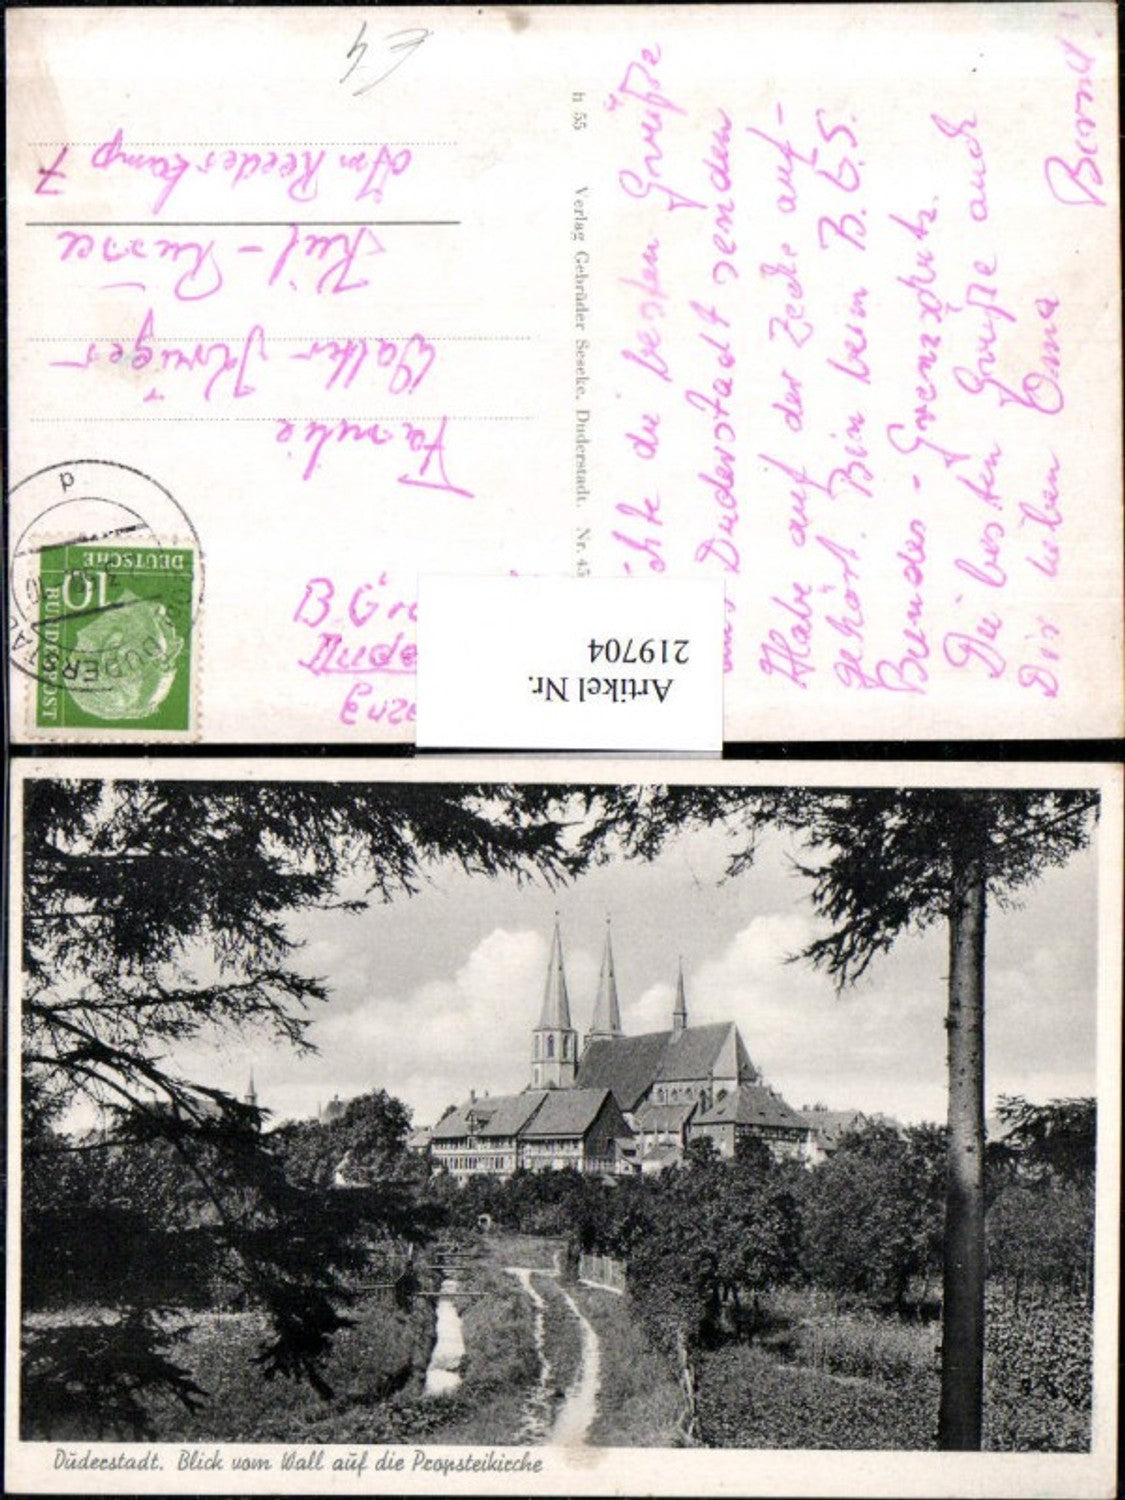 €4
Familie
Walter Krüger
Kiel - Russee
Am Reederkamp 7
DEUTSCHE
BUNDESPOST
10
DUDERSTADT
d
h 55 Verlag Gebrüder Seseke, Duderstadt. Nr. 45
die besten Grüße
Duderstadt senden
Habe auf der Zeche auf-
gehört. Bin beim B.G.S.
Bundes - Grenzschutz.
Die besten Grüße auch
Dir lieben Oma
Bernd!
Artikel Nr.
219704
Duderstadt. Blick vom Wall auf die Propsteikirche